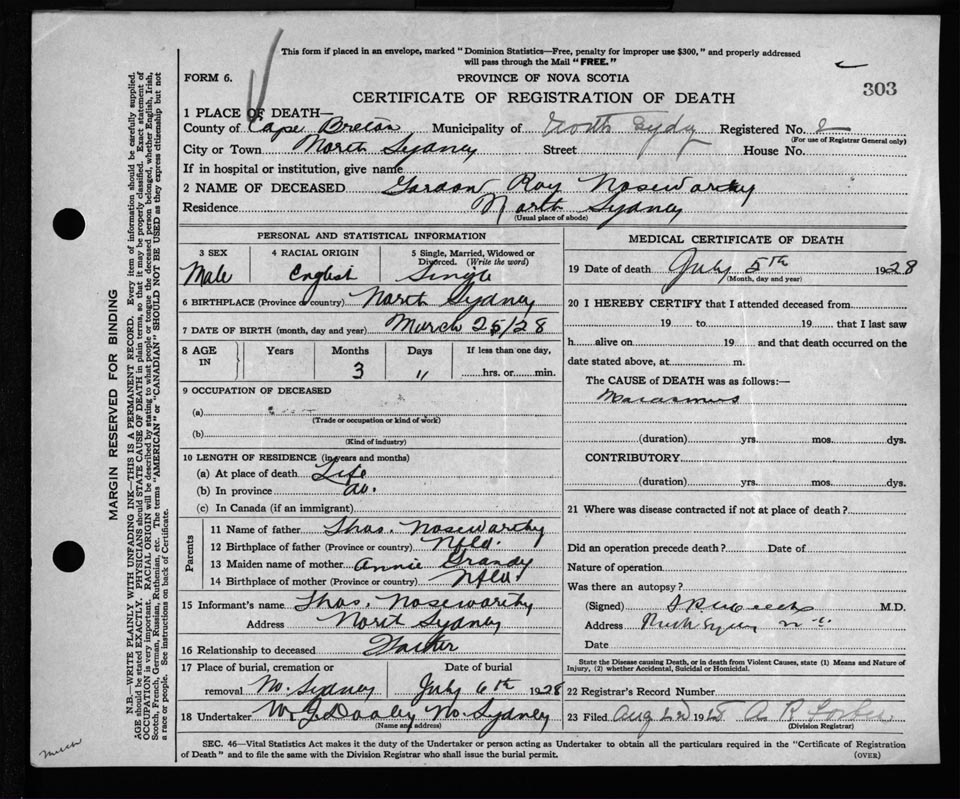 This form if placed in an envelope, marked "Dominion Statistics—Free, penalty for improper use $300," and properly addressed
will pass through the Mail "FREE."
FORM 6.
PROVINCE OF NOVA SCOTIA
303
CERTIFICATE OF REGISTRATION OF DEATH
1 PLACE OF DEATH—
County of Cape Breton Municipality of North Sydy Registered No. 2
(For use of Registrar General only)
City or Town North Sydney Street House No.
If in hospital or institution, give name
2 NAME OF DECEASED Gordon Roy Noseworthy
Residence North Sydney
(Usual place of abode)
PERSONAL AND STATISTICAL INFORMATION
3 SEX 4 RACIAL ORIGIN 5 Single, Married, Widowed or Divorced. (Write the word)
Male English Single
6 BIRTHPLACE (Province or country) North Sydney
7 DATE OF BIRTH (month, day and year) March 25/28
8 AGE IN Years Months Days If less than one day,
3 11 hrs. or min.
9 OCCUPATION OF DECEASED
(a)
(Trade or occupation or kind of work)
(b)
(Kind of industry)
10 LENGTH OF RESIDENCE (in years and months)
(a) At place of death Life
(b) In province do.
(c) In Canada (if an immigrant)
Parents
11 Name of father Thos. Noseworthy
12 Birthplace of father (Province or country) Nfld.
13 Maiden name of mother Annie Grandy
14 Birthplace of mother (Province or country) Nfld
15 Informant's name Thos. Noseworthy
Address North Sydney
16 Relationship to deceased Father
17 Place of burial, cremation or Date of burial
removal No. Sydney July 6th 1928
18 Undertaker W J Dooley No. Sydney
(Name and address)
MEDICAL CERTIFICATE OF DEATH
19 Date of death July 5th 1928
(Month, day and year)
20 I HEREBY CERTIFY that I attended deceased from
19 to 19 that I last saw
h alive on 19 and that death occurred on the
date stated above, at m.
The CAUSE of DEATH was as follows:—
Marasmus
(duration) yrs. mos. dys.
CONTRIBUTORY
(duration) yrs. mos. dys.
21 Where was disease contracted if not at place of death?
Did an operation precede death? Date of
Nature of operation
Was there an autopsy?
(Signed) M.D.
Address North Sydney N.S.
Date
State the Disease causing Death, or in death from Violent Causes, state (1) Means and Nature of
Injury, (2) whether Accidental, Suicidal or Homicidal.
22 Registrar's Record Number
23 Filed Aug 1928 A R Forbes
(Division Registrar)
SEC. 46—Vital Statistics Act makes it the duty of the Undertaker or person acting as Undertaker to obtain all the particulars required in the "Certificate of Registration
of Death" and to file the same with the Division Registrar who shall issue the burial permit.
(OVER)
MARGIN RESERVED FOR BINDING
N.B.—WRITE PLAINLY WITH UNFADING INK—THIS IS A PERMANENT RECORD. Every item of information should be carefully supplied.
AGE should be stated EXACTLY. PHYSICIANS should STATE CAUSE OF DEATH in plain terms, so that it may be properly classified. Exact statement of
OCCUPATION is very important. RACIAL ORIGIN will be described by stating to what people or tongue the deceased person belonged, whether English, Irish,
Scotch, French, German, Russian, Ruthenian, etc. The terms "AMERICAN" or "CANADIAN" SHOULD NOT BE USED as they express citizenship but not
a race or people. See instructions on back of Certificate.